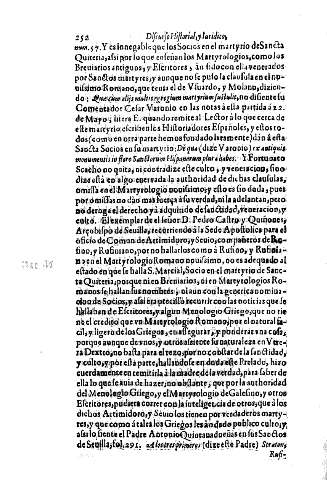 252 Discurso Historial, y Iuridico,
num. 57. Y es innegable que los Socios en el martyrio de Sancta
Quiteria, assi por lo que ensenan los Martyrologios, como los
Breviarios antiguos, y Escritores, an sido con ella venerados
por Sanctos martyres, y aunque no se puso la clausula en el no-
vissimo Romano, que tenia el de Vsuardo, y Molano, dizien-
do:
Comentador Cesar Varonio en las notas a esta partida a 22.
de Mayo, litera E. quando remite al Lector à lo que cerca de
este martyrio escriben los Historiadores Españoles, y estos to-
dos (como en otra parte hemos fundado lata mente) dàn à esta
Sancta Socios en su martyrio: De qua (dize Varonio) ex antiquis
monumentis in flore Sanctorum Hispanorum plura habes. Y Fortunato
Scacho no quita, ni contradize este culto, y veneracion, sino
dize està en algo enervada la authoridad de dichas clausulas,
omissa en el Martyrologio novissimo, y esto es sin duda, pues
por omissas no dàn mas fuerça à su verdad, ni la adelantan, pero
no deroga el derecho yà adquirido de sanctidad, veneracion, y
culto. El exemplar de el señor D. Pedro Castro y Quiñones,
Arçobispo de Sevilla, recurriendo à la Sede Apostolica para el
oficio de Comun de Artimidoro, y Seuio, compañeros de Ru-
fino, y Rufiniano, por no hallar los como à Rufino, y Rufinia-
no en el Martyrologio Romano novissimo, no es adequado al
estado en que se halla S. Marcial, Socio en el martyrio de Sanc-
ta Quiteria, porque ni en Breviarios, ni en Martyrologios Ro-
manos se hallan sus nombres,
hallaban de Escritores, y algun Menologio Griego, que no tie-
ne el credito que vn Martyrologio Romano, por el natural fa-
cil, y ligero de los Griegos, en assegurar, y ponderar vna cosa,
porque aunque de vnos, y otros assiente su naturaleza en Vtre-
ra Dextro, no basta para el rezo, por no constar de la sanctidad,
y culto, y por esta parte, hallandose en duda este Prelado, hizo
cuerdamente en remitirla à la madre de la verdad, para saber de
ella lo que se auia de hazer, no obstante, que por la authoridad
del Menologio Griego, y el Martyrologio de Galesino, y otros
Escritores, pudiera correr con la inteligencia de otros, que à los
dichos Artimidoro, y Seuio los tienen por verdaderos marty-
res, y que como à tales los Griegos les àn dado publico culto, y
assi lo siente el Padre Antonio Quintanadueñas en sus Sanctos
de Sevilla, fol. 291. (dize este Padre)
Rufi-